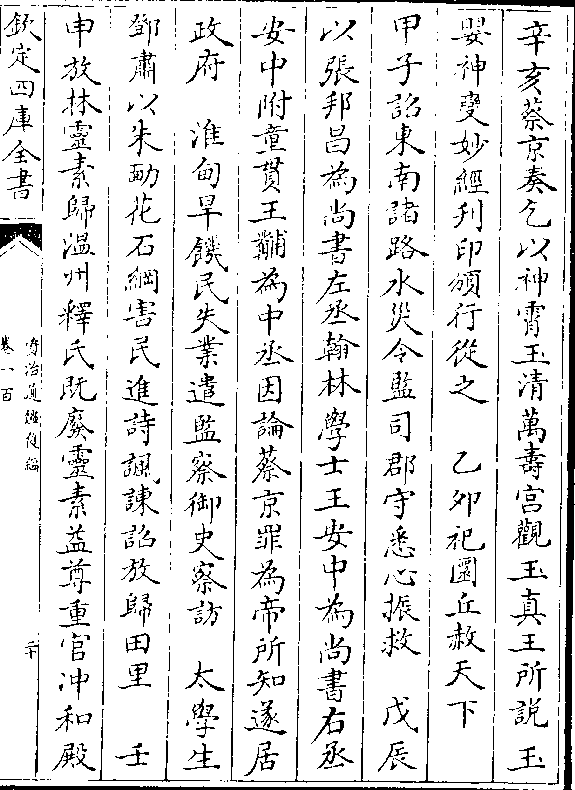 辛亥蔡京奏乞以神霄玉清萬壽宮觀玉真王所説玉
嬰神變妙經刋印頒行從之　乙夘祀圜丘赦天下
甲子詔東南諸路水災令監司郡守悉心振救　戊辰
以張邦昌為尚書左丞翰林學士王安中為尚書右丞
安中附童貫王黼為中丞因論蔡京罪為帝所知遂居
政府　淮甸旱饑民失業遣監察御史察訪　太學生
鄧肅以朱勔花石綱害民進詩諷諫詔放歸田里　壬
申放林靈素歸温州釋氏既廢靈素益尊重官冲和殿
欽定四庫全書
資治通鑑後編
卷一百
二十